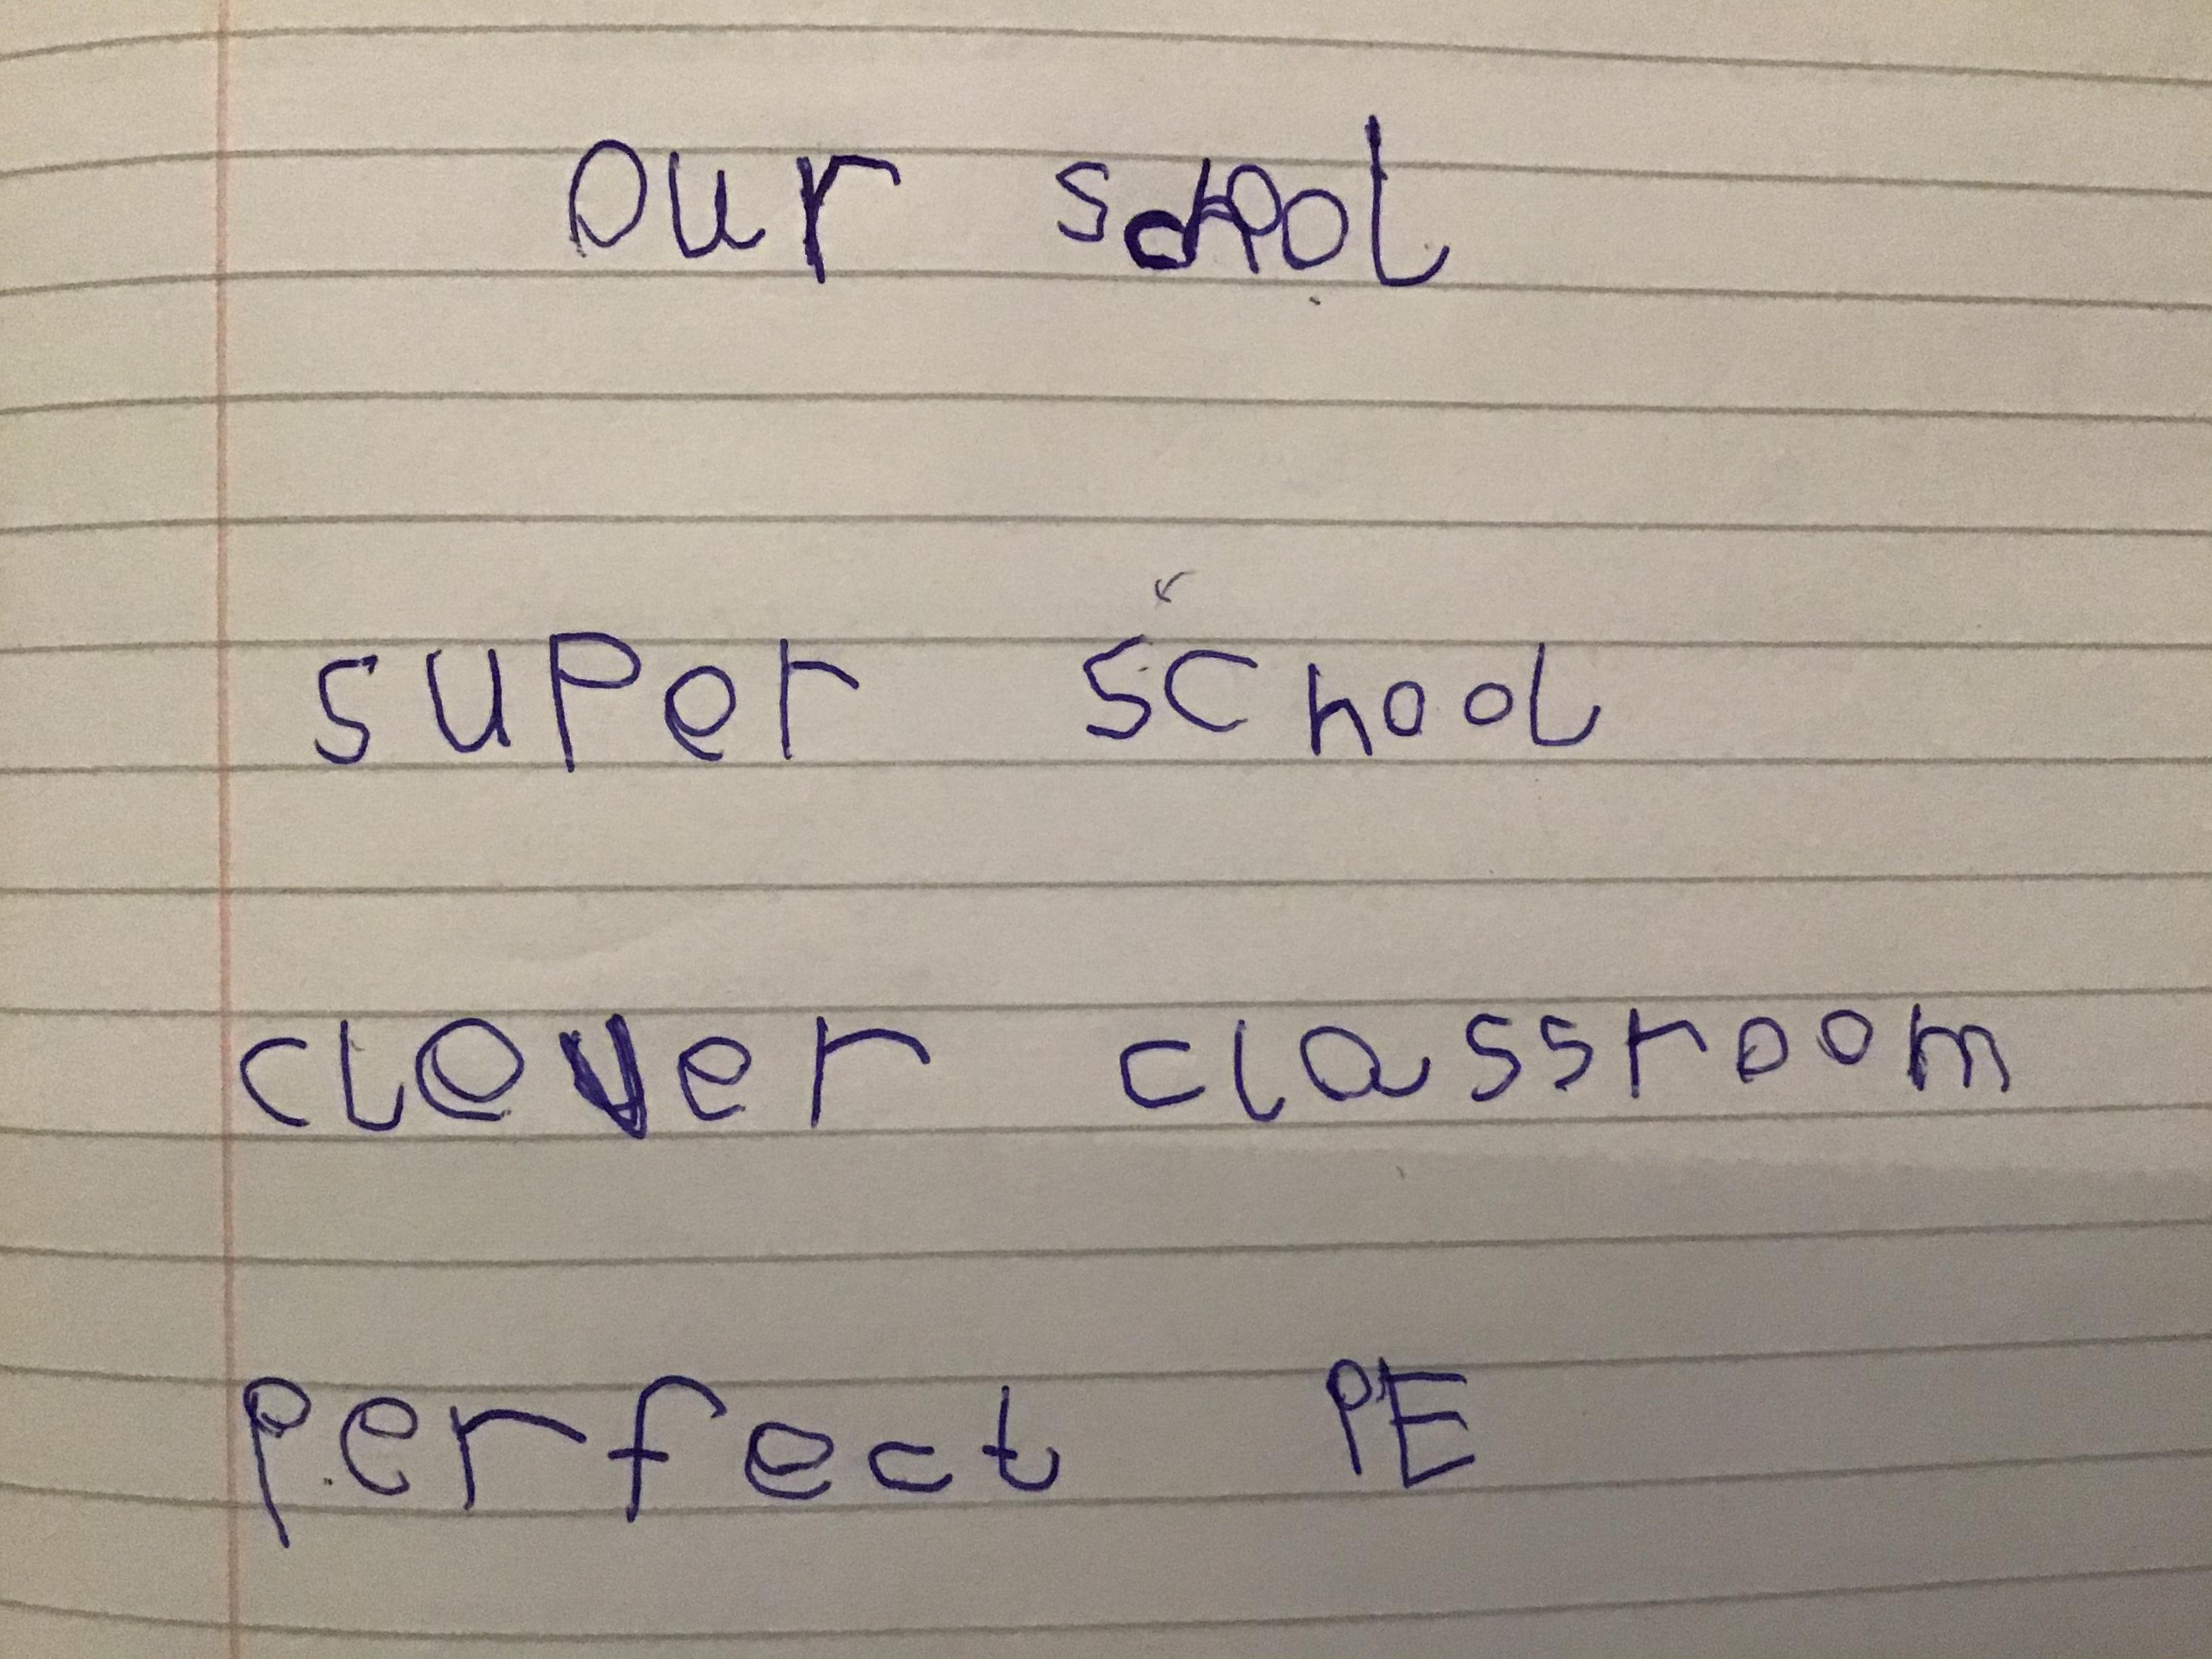 our school
super school
clever classroom
perfect PE